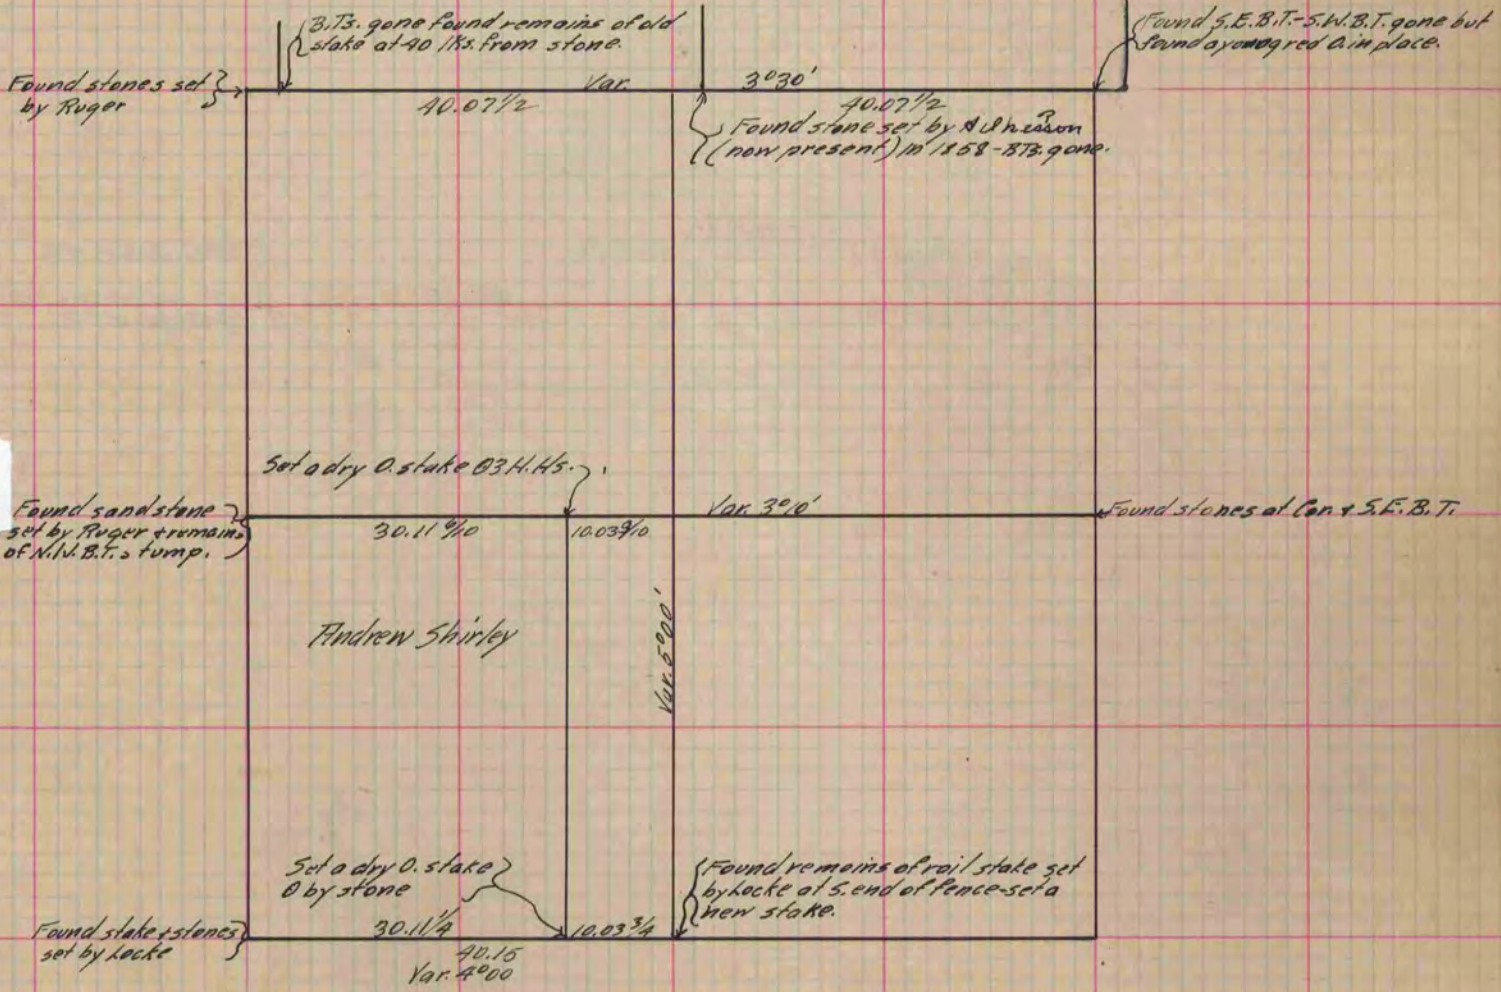 B.Ts. gone found remains of old
stake at 40 lks. from stone.
Found S.E.B.T.-S.W.B.T. gone but
found a young red O. in place.
Found stones set
by Ruger
Var. 3°30'
40.07 1/2
40.07 1/2
Found stone set by
(now present) in 1858 - BTs. gone.
Set a dry O. stake
Found sandstone
set by Ruger & remains
of N.W.B.T. stump.
30.11 9/10
10.03 9/10
Var. 3°10'
Found stones at Cor. & S.E.B.T.
Andrew Shirley
Var. 5°00'
Set a dry O. stake
by stone
Found remains of rail stake set
by Locke at S. end of fence-set a
new stake.
Found stake & stones
set by Locke
30.11 1/4
10.03 3/4
40.15
Var. 4°00